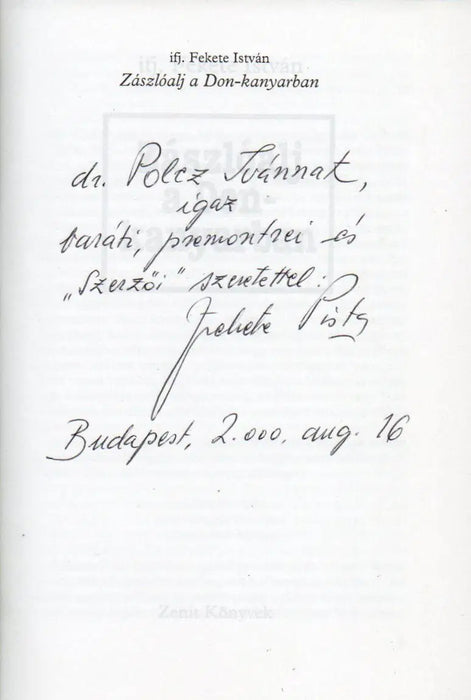 ifj. Fekete István
Zászlóalj a Don-kanyarban
dr. Polcz Ivánnak,
igaz
baráti, premontrei és
„Szerzői" szeretettel:
Fekete Pista
Budapest, 2.000. aug. 16
Zenit Könyvek